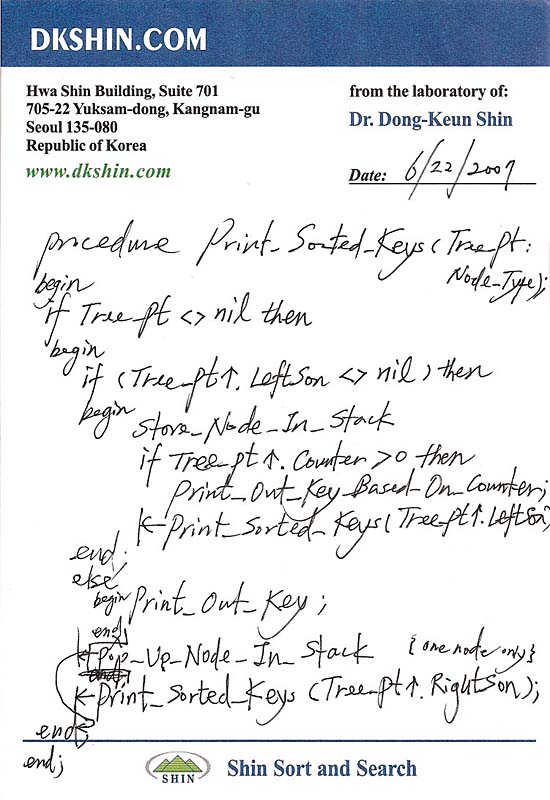 DKSHIN.COM
Hwa Shin Building, Suite 701
705-22 Yuksam-dong, Kangnam-gu
Seoul 135-080
Republic of Korea
www.dkshin.com
from the laboratory of:
Dr. Dong-Keun Shin
Date: 6/22/2007
procedure Print_Sorted_Keys (Tree_pt:
Node_Type);
begin
if Tree_pt <> nil then
begin
if (Tree_pt↑. LeftSon <> nil) then
begin
Store_Node_In_Stack
if Tree_pt↑. Counter >0 then
Print_Out_Key_Based_On_Counter;
Print_Sorted_Keys (Tree_pt↑. LeftSon)
end
else
begin Print_Out_Key;
end;
Pop_Up_Node_In_Stack {one node only}
end;
Print_Sorted_Keys (Tree_pt↑. RightSon);
end;
end;
SHIN
Shin Sort and Search